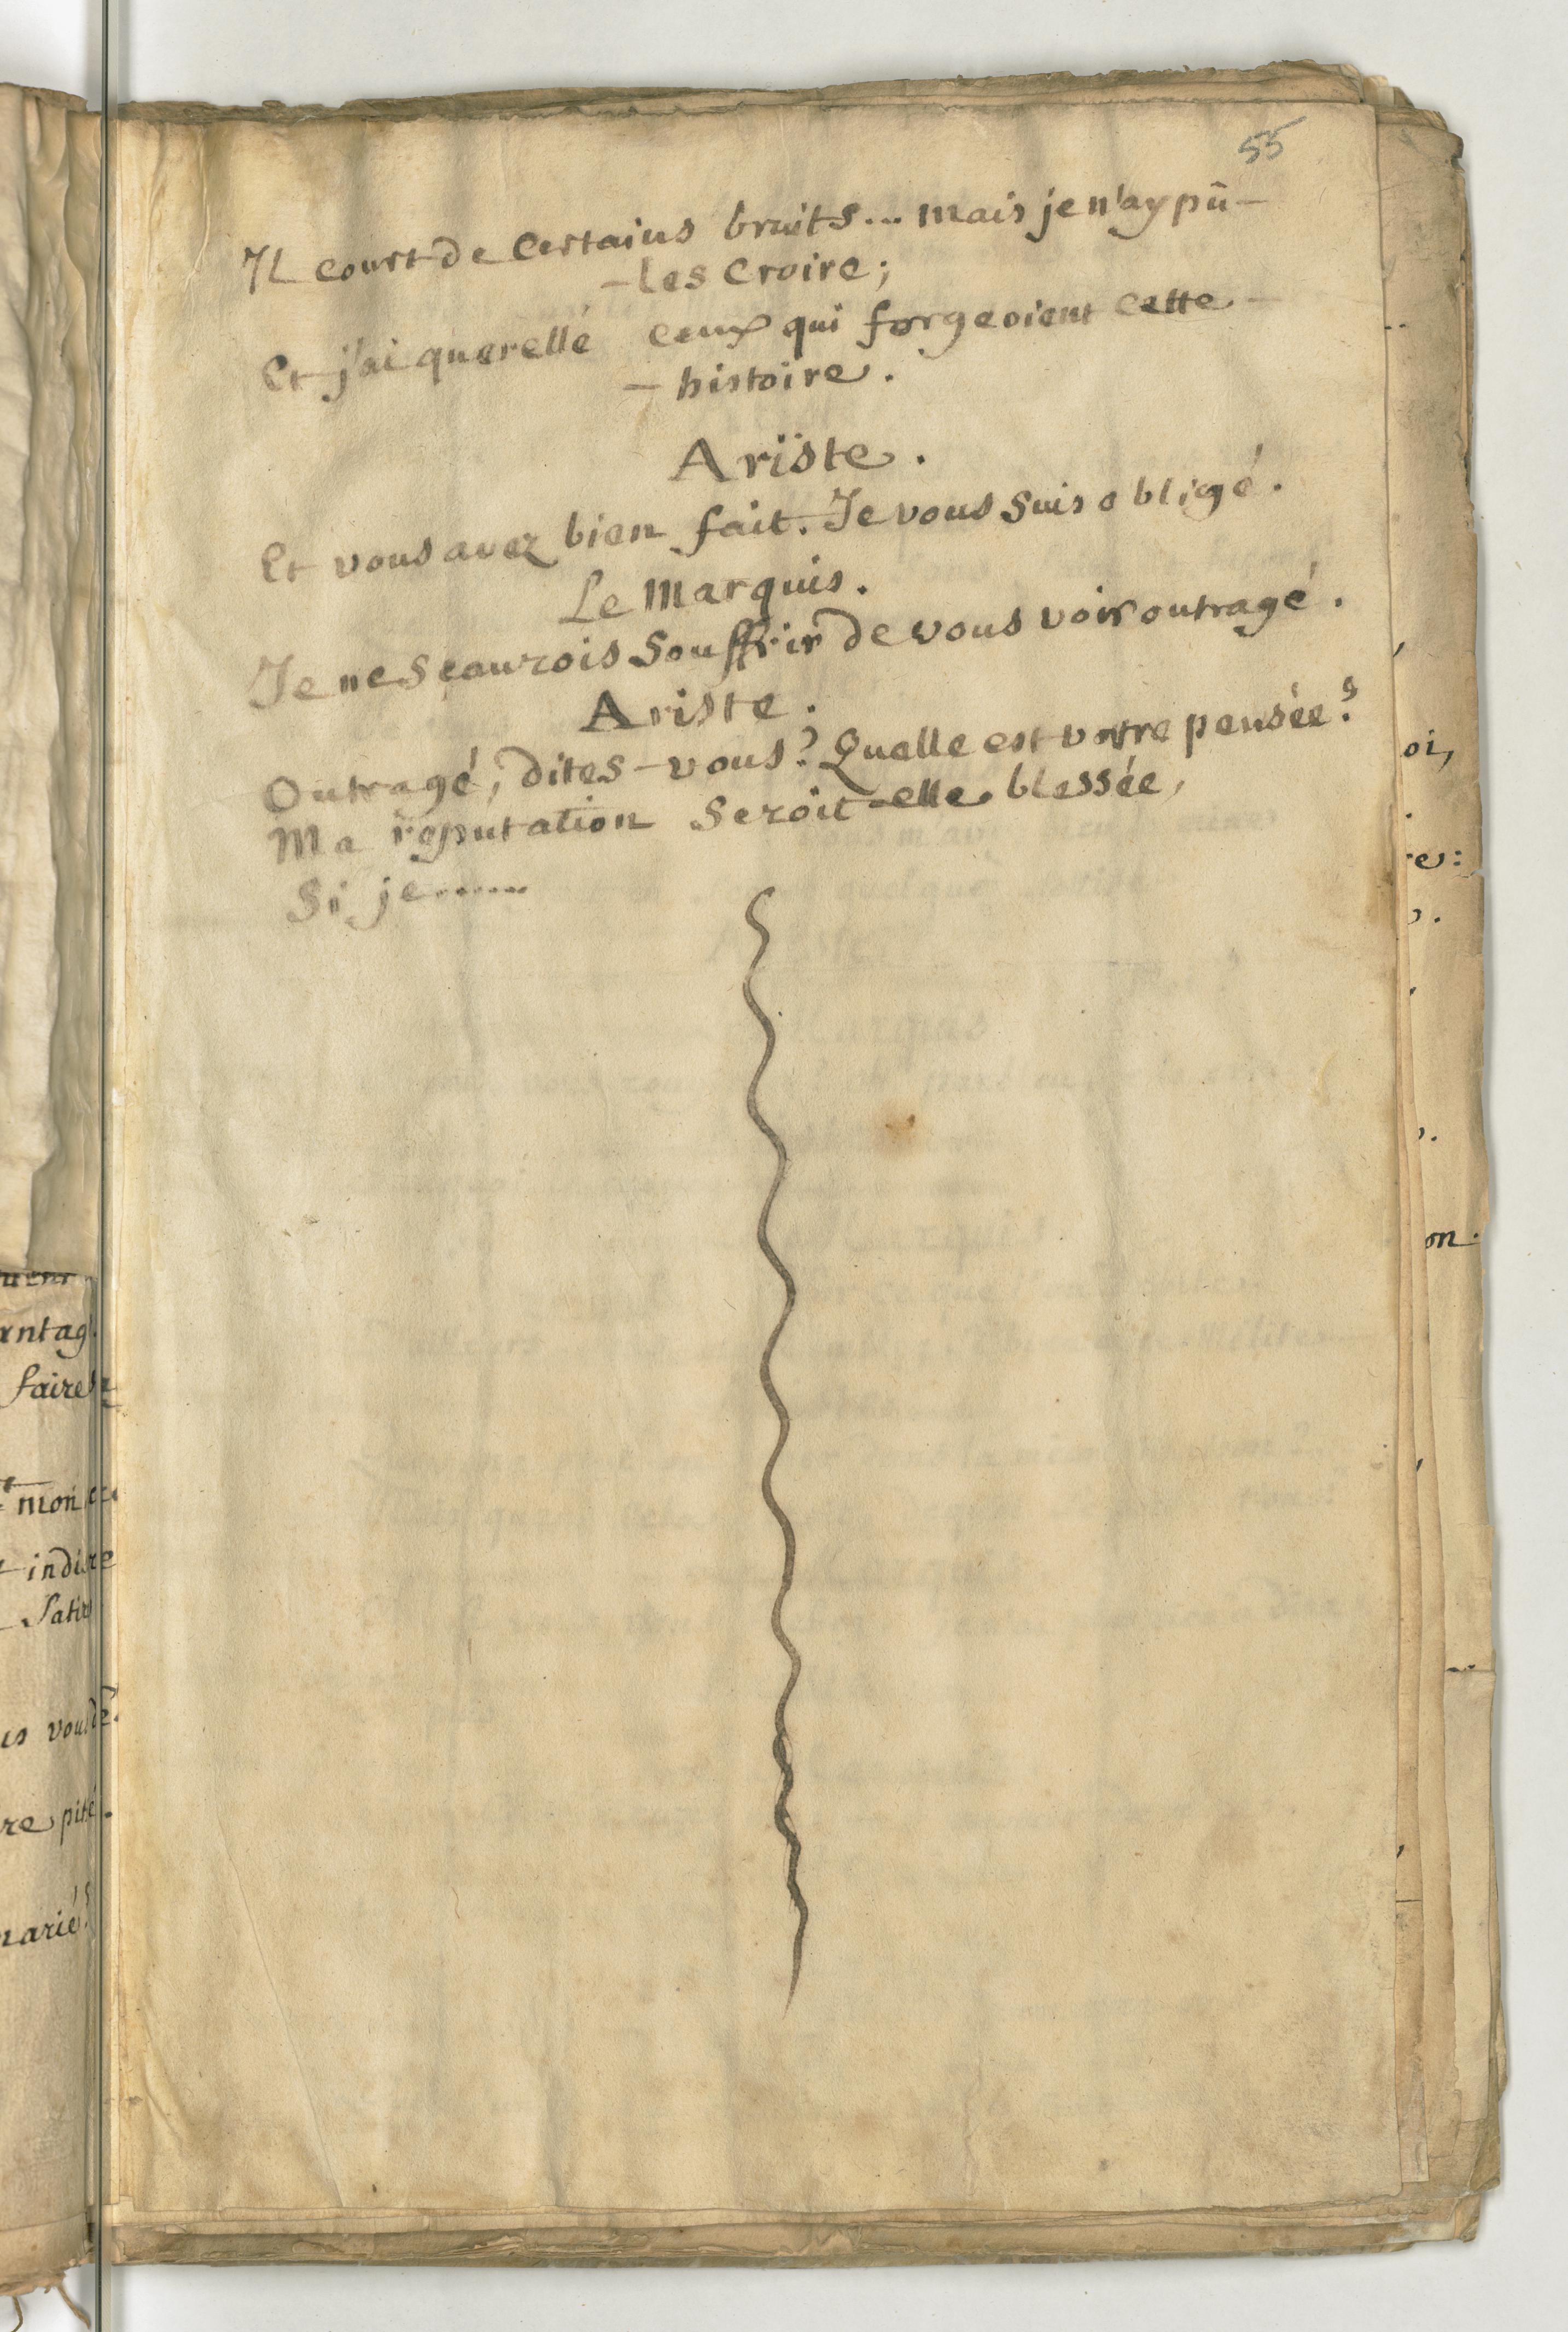 55
Il court de certains bruits... mais je n'ay pû-
-les croire;
Et j'ai querellé ceux qui forgeoient cette-
-histoire.
Ariste.
Et vous avez bien fait. Je vous suis obligé.
Le Marquis.
Je ne sçaurois souffrir de vous voir outragé.
Ariste.
Outragé, dites-vous? Quelle est votre pensée?
Ma reputation seroit-elle blessée,
Si je......
oi,
re:
on.
antag
faire
mon
indi
Sati
is vous
re pit
marié?